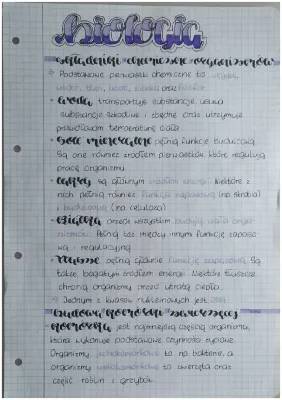 biologia
składniki chemiczne organizmów
Podstawowe pierwiastki chemiczne to węgiel,
wodór, tlen, azot, siarka oraz fosfor
woda transportuje substancje, usuwa
substancje szkodliwe i zbędne oraz utrzymuje
prawidłową temperaturę ciała
Sole mineralne pełnią funkcję budulcową.
Są one również źródłem pierwiastków, które regulują
pracę organizmu
cukry są głównym źródłem energii. Niektóre z
nich pełnią również funkcję zapasową (np. skrobia)
i budulcową (np. celuloza)
Białka przede wszystkim budują ciała orga-
nizmów. Pełnią też między innymi funkcję zapaso-
wą i regulacyjną
tłuszcze pełnią głównie funkcję zapasową. Są
także bogatym źródłem energii. Niektóre tłuszcze
chronią organizmy przed utratą ciepła.
Jednym z kwasów nukleinowych jest DNA
budowa komórki zwierzęcej
komórka jest najmniejszą częścią organizmu,
która wykonuje podstawowe czynności życiowe.
Organizmy jednokomórkowe to np. bakterie, a
organizmy wielokomórkowe to zwierzęta oraz
część roślin i grzybów.